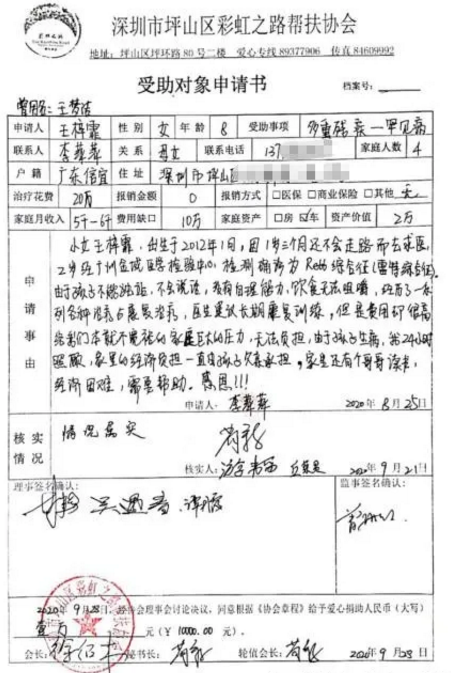 深圳市坪山区彩虹之路帮扶协会
地址：坪山区坪环路80号二楼 爱心专线89377906 传真84609992
受助对象申请书
档案号：
曾用名：王梦洁
申请人 王梓霏 性别 女 年龄 8 受助事项 多重残疾一罕见病
联系人 李萍萍 关系 母女 联系电话 137 家庭人数 4
户籍 广东信宜 深圳市坪山区
治疗花费 20万 报销金额 0 报销方式 □医保 □商业保险 □其他 无
家庭月收入 5千-6千 费用缺口 10万 家庭资产 □房 车 资产价值 2万
申请事由
小女王梓霏，出生于2012年1月，因1岁三个月还不会走路而去求医，
2岁经广州金域医学检验中心，检测确诊为Rett综合征（雷特综合征）。
由于孩子不能站，不会说话，没有自理能力，饮食无法咀嚼，经历了一系
列各种治疗与康复治疗，医生建议长期康复训练，但是费用
给我们本就不宽裕的家庭巨大的压力，无法负担，由于孩子生病，我24小时
照顾，家里的经济负担一直由孩子父亲承担，家里还有个哥哥读书，
经济困难，需要帮助。感恩!!!
申请人：李萍萍 2020年8月25日
核实情况
情况属实
核实人： 2020年9月21日
理事签名确认： 监事签名确认：
深圳市坪山区彩虹之路帮扶协会
2020年9月28日，经协会理事会讨论决议，同意根据《协会章程》给予爱心捐助人民币（大写）
壹万 元（￥10000.00 元）
会长： 秘书长： 轮值会长： 2020年9月28日